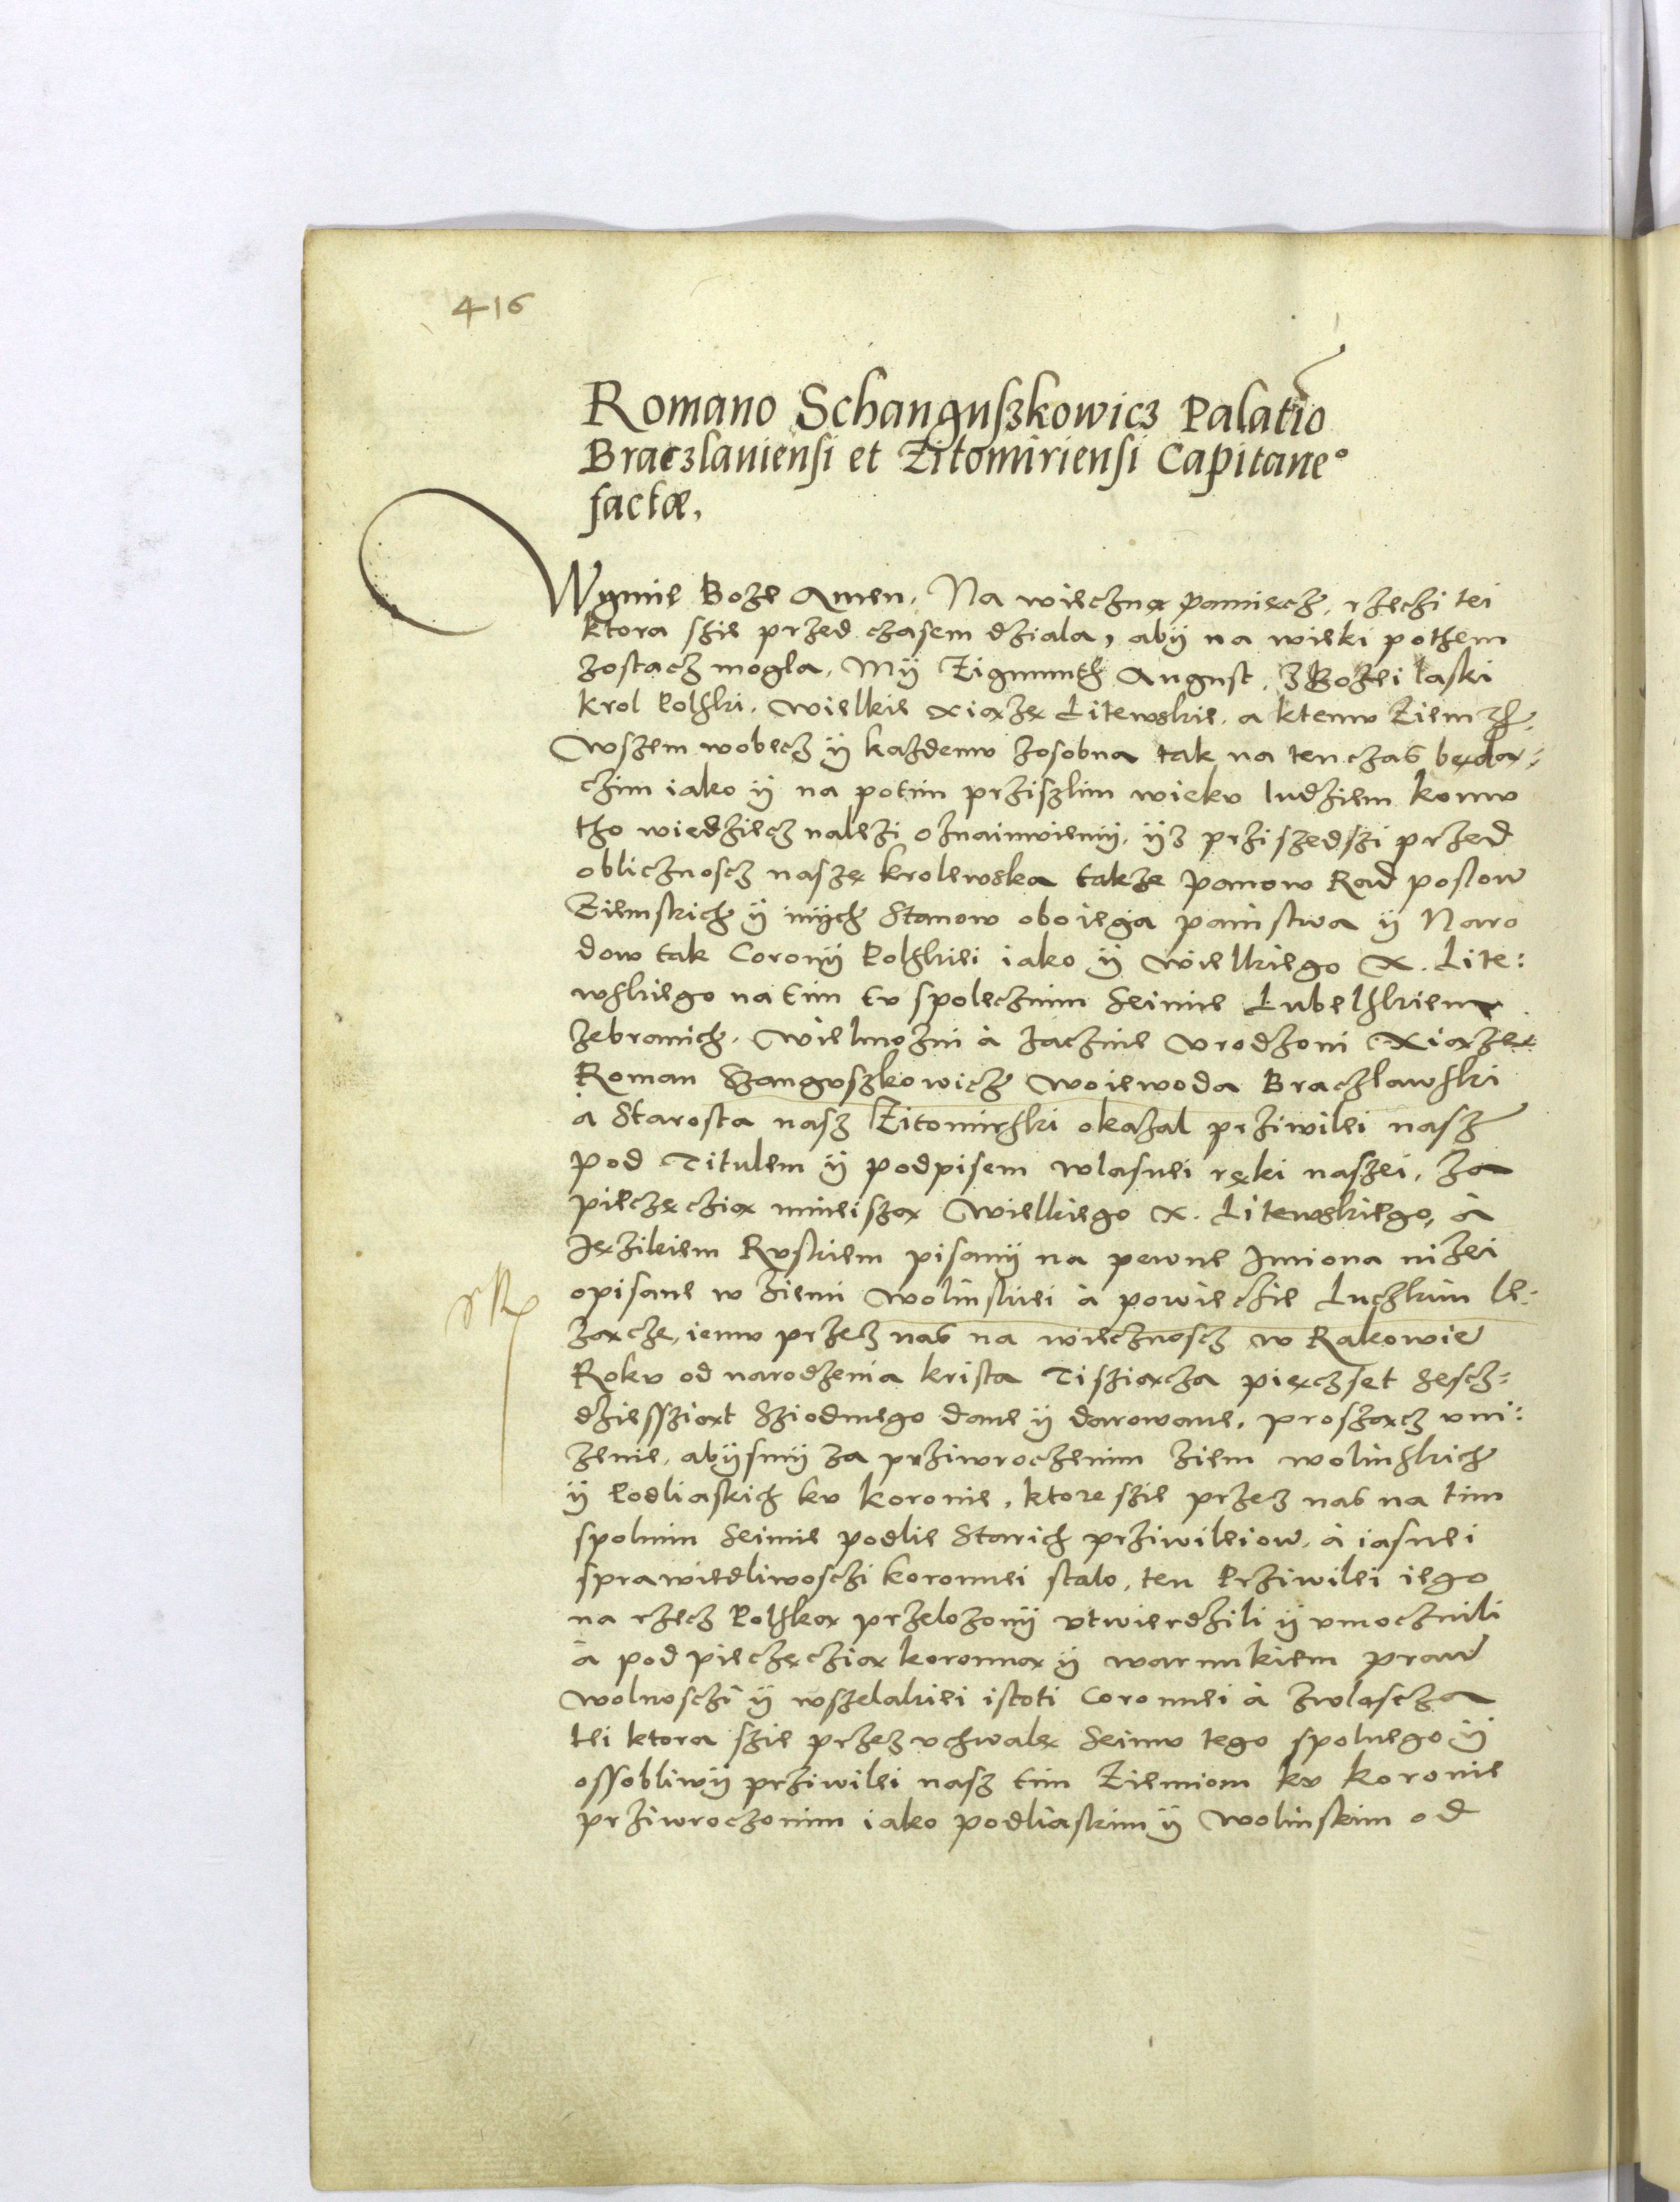 416
Romano Schanguszkowicz Palatio
Braczlauiensi et Zitomiriensi Capitaneo
factæ,
Wymię Boże Amen. Na wieczną pamięcz, rzeczi tei
ktora szie przed czasem dziala, abÿ na wieki pothem
zostacz mogla, Mÿ Zigmunth August, z Bożei laski
krol Polski. Wielkie Xiążę Litewskie. a ktemv Ziem
Wszem wobecz ÿ każdemv zosobna tak na ten czas będą:
czim iako ÿ na potim prziszlim wiekv ludziem komv
tho wiedziecz należi oznaimviemÿ, ÿż prziszedszi przed
obliczność naszę krolewska także panow Rad poslow
Ziemskich ÿ inÿch Stanow oboiega painstwa ÿ Naro
dow tak Coronÿ Polskiei iako ÿ Wielkiego X. Lite:
wskiego na tim tv spolecznim Seimie Lubelskiem
zebranich. Wielmożni à zacznie vrodzoni Xiążę
Roman Szangvszkowicz Woiewoda Braczlawski
a Starosta nasz Zitomirski okazal prziwilei nasz
pod Titulem ÿ podpisem wlasnei ręki naszei, za
pieczęczią mnieiszą Wielkiego X. Litewskiego, à
Językiem Rvskiem pisanÿ na pewne Imiona niżei
opisane w ziemi Wolinskiei à powieczie Luczkim le:
żącze, iemv przez nas na wiecznoscz w Rakowie
Rokv od narodzenia krista Tisziącza pięczset szescz=
dziesziąt Sziodmego dane ÿ darowane, prosząc vni:
żenie, abÿsmÿ za prziwroczenim ziem wolinskich
ÿ Podliaskich kv koronie, ktore szie przez nas na tim
spolnim Seimie podlie Starich prziwileiow, à iasnei
sprawiedliwosczi koronnei stalo, ten Prziwilei iego
na rzecz Polską przelożonÿ vtwierdzili ÿ vmocznili
à pod pieczęczią koronną ÿ warunkiem praw
wolnosczi ÿ wszelakiei istoti Coronnei à zwlascza
tei ktora szie przez vchwalę Seimv tego spolnego ÿ
ossobliwÿ prziwilei nasz tim Ziemiom kv koronie
prziwroczonim iako podliaskim ÿ Wolinskim od